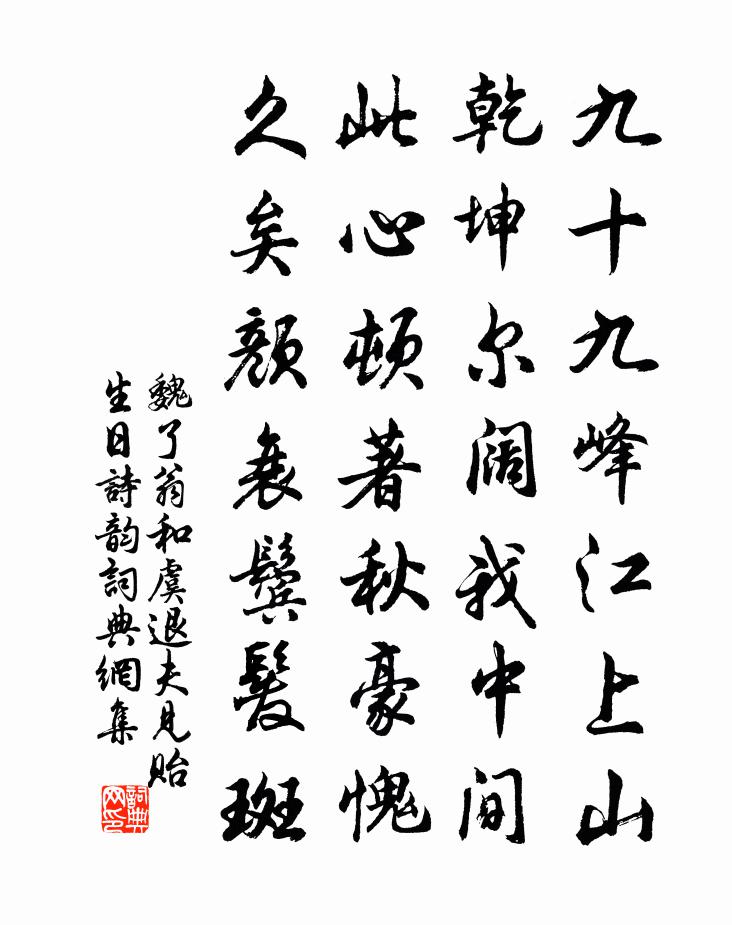 九十九峰江上山
乾坤尔阔我中间
此心顿著秋豪愧
久矣颜衰鬓髮斑
魏了翁和虞退夫見贻
生日詩韵詞典網集
詞典网印